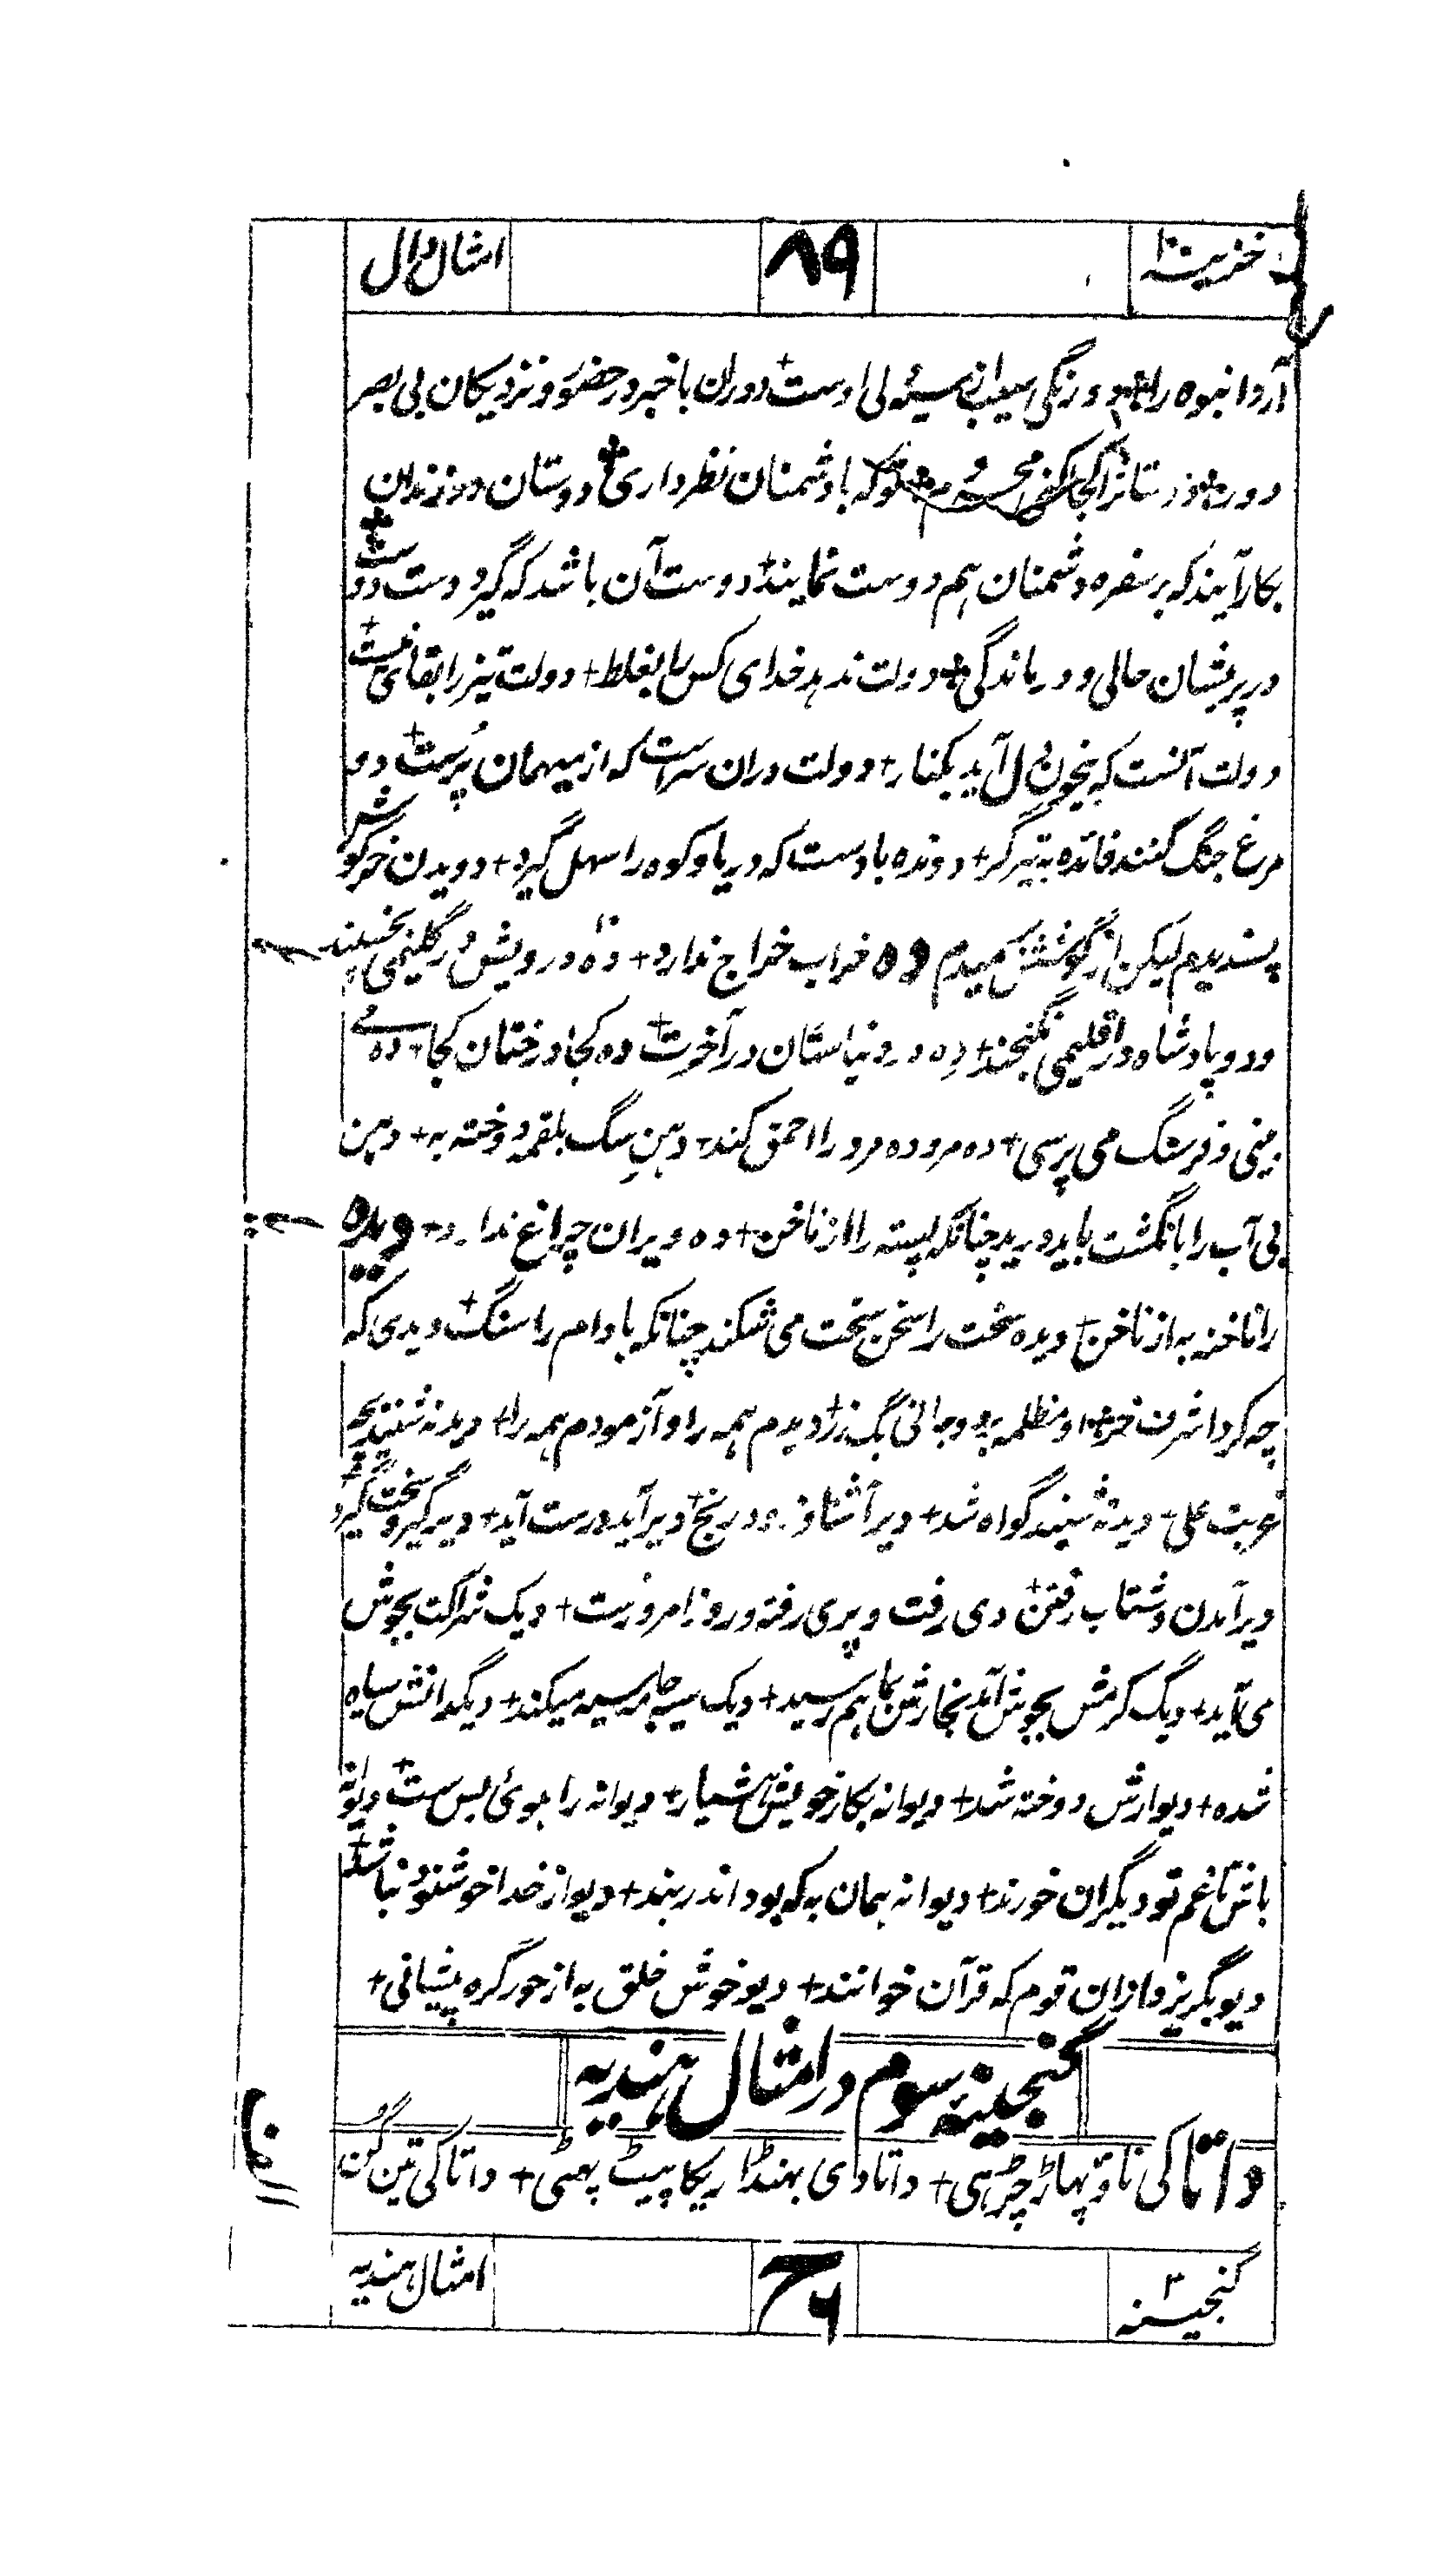 خزینہ ۱۰ ۸۹ امثال دال
آرد انبوہ را + دو رنگی عیب از سینہ لی اوست + دوران باخبر در حضور و نزدیکان بی بصر
دور + دوستانرا کجا کنی محروم + تو کہ با دشمنان نظر داری + دوستان در زندان
بکار آیند کہ بر سفرہ دشمنان ہم دوست نمایند + دوست آن باشد کہ گیرد دست دوست +
در پریشان حالی و درماندگی + دولت ندہد خدای کس را بغلط + دولت تیز را بقای نیست +
دولت آنست کہ بیخون دل آید بکنار + دولت دران سراست کہ از میہمان پرست + دو
مرغ جنگ کنند فائدہ بہ تیرگر + دوندہ باد ست کہ دریا و کوہ را سہل گیرد + دویدن خرگوش
پسندیدم لیکن از گوشتش رمیدم دہ خراب خراج ندارد + دہ درویش در گلیمی بخسپند
و دو پادشاہ در اقلیمی نگنجند + دہ در دنیا ستان در آخرت + دہ کجا درختان کجا + دہ می
بینی و فرسنگ می پرسی + دہ مردہ مرد را احمق کند + دہن سگ بلقمہ دوختہ بہ + دہن
بی آب را بانگشت باید درید چنانکہ پستہ را از ناخن + دہ ویران چراغ ندارد + دیدہ
را ناخنہ بہ از ناخن + دیدہ سخت را سخن سخت می شکند چنانکہ بادام را سنگ + دیدی کہ
چہ کرد اشرف خر + او مظلمہ برد و جانی دگر زر + دیدم ہمہ را و آزمودم ہمہ را +
غربت علی + دید نہ شنید گواہ شد + دیر آشنا زود رنج + دیر آید درست آید + دیر گیرد سخت گیرد
دیر آمدن و شتاب رفتن + دی رفت و پری رفتہ و روز امروزست + دیک شراکت بجوش
می آید + دیگ کرمش بجوش آمد بخارش بما ہم رسید + دیک سیہ جامہ سیہ میکند + دیگدانش سیاہ
شدہ + دیوارش دوختہ شد + دیوانہ بکار خویش ہشیار + دیوانہ را ہوئی بس ست + دیوانہ
باش تا غم تو دیگران خورند + دیوانہ ہمان بہ کہ بود اندر بند + دیو از خدا خوشنود نباشد +
دیو بگریزد ازان قوم کہ قرآن خوانند + دیو خوش خلق بہ از حور گرہ پیشانی +
گنجینہ سوم در امثال ہندیہ
داتا کی ناؤ پہاڑ چڑہی + داتا دی بہنڈاریکا پیٹ پھٹی + داتا کی تین گن
گنجینہ ۳ امثال ہندیہ